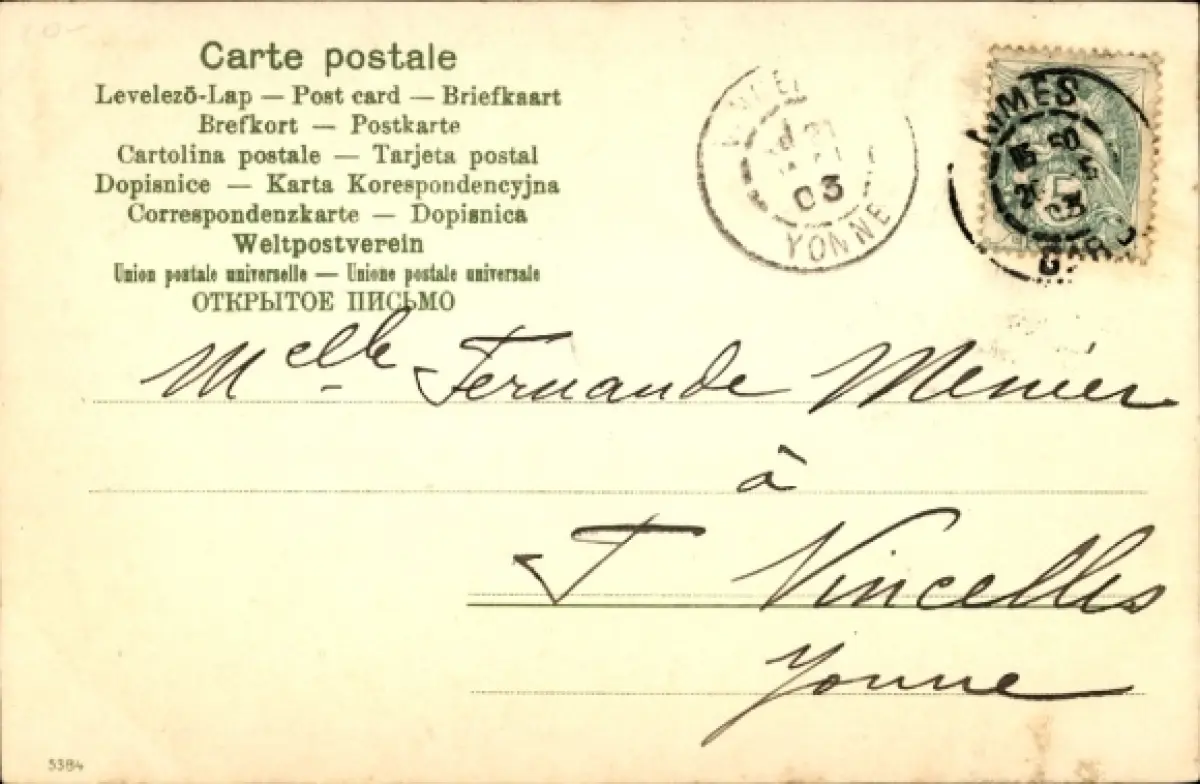 Carte postale
Levelező-Lap — Post card — Briefkaart
Brefkort — Postkarte
Cartolina postale — Tarjeta postal
Dopisnice — Karta Korespondencyjna
Correspondenzkarte — Dopisnica
Weltpostverein
Union postale universelle — Unione postale universale
ОТКРЫТОЕ ПИСЬМО
03
YONNE
NIMES
GARD
Melle Fernande Menier
à
Vincelles
Yonne
5384